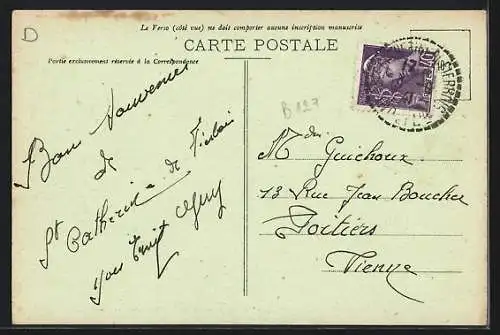 D
Le Verso (côté vue) ne doit comporter aucune inscription manuscrite
CARTE POSTALE
Partie exclusivement réservée à la Correspondance
B 127
Bon Souvenir
de
St Catherine de Fierbois
Yves
Guichoux
13 Rue Jean Boucher
Poitiers
Vienne